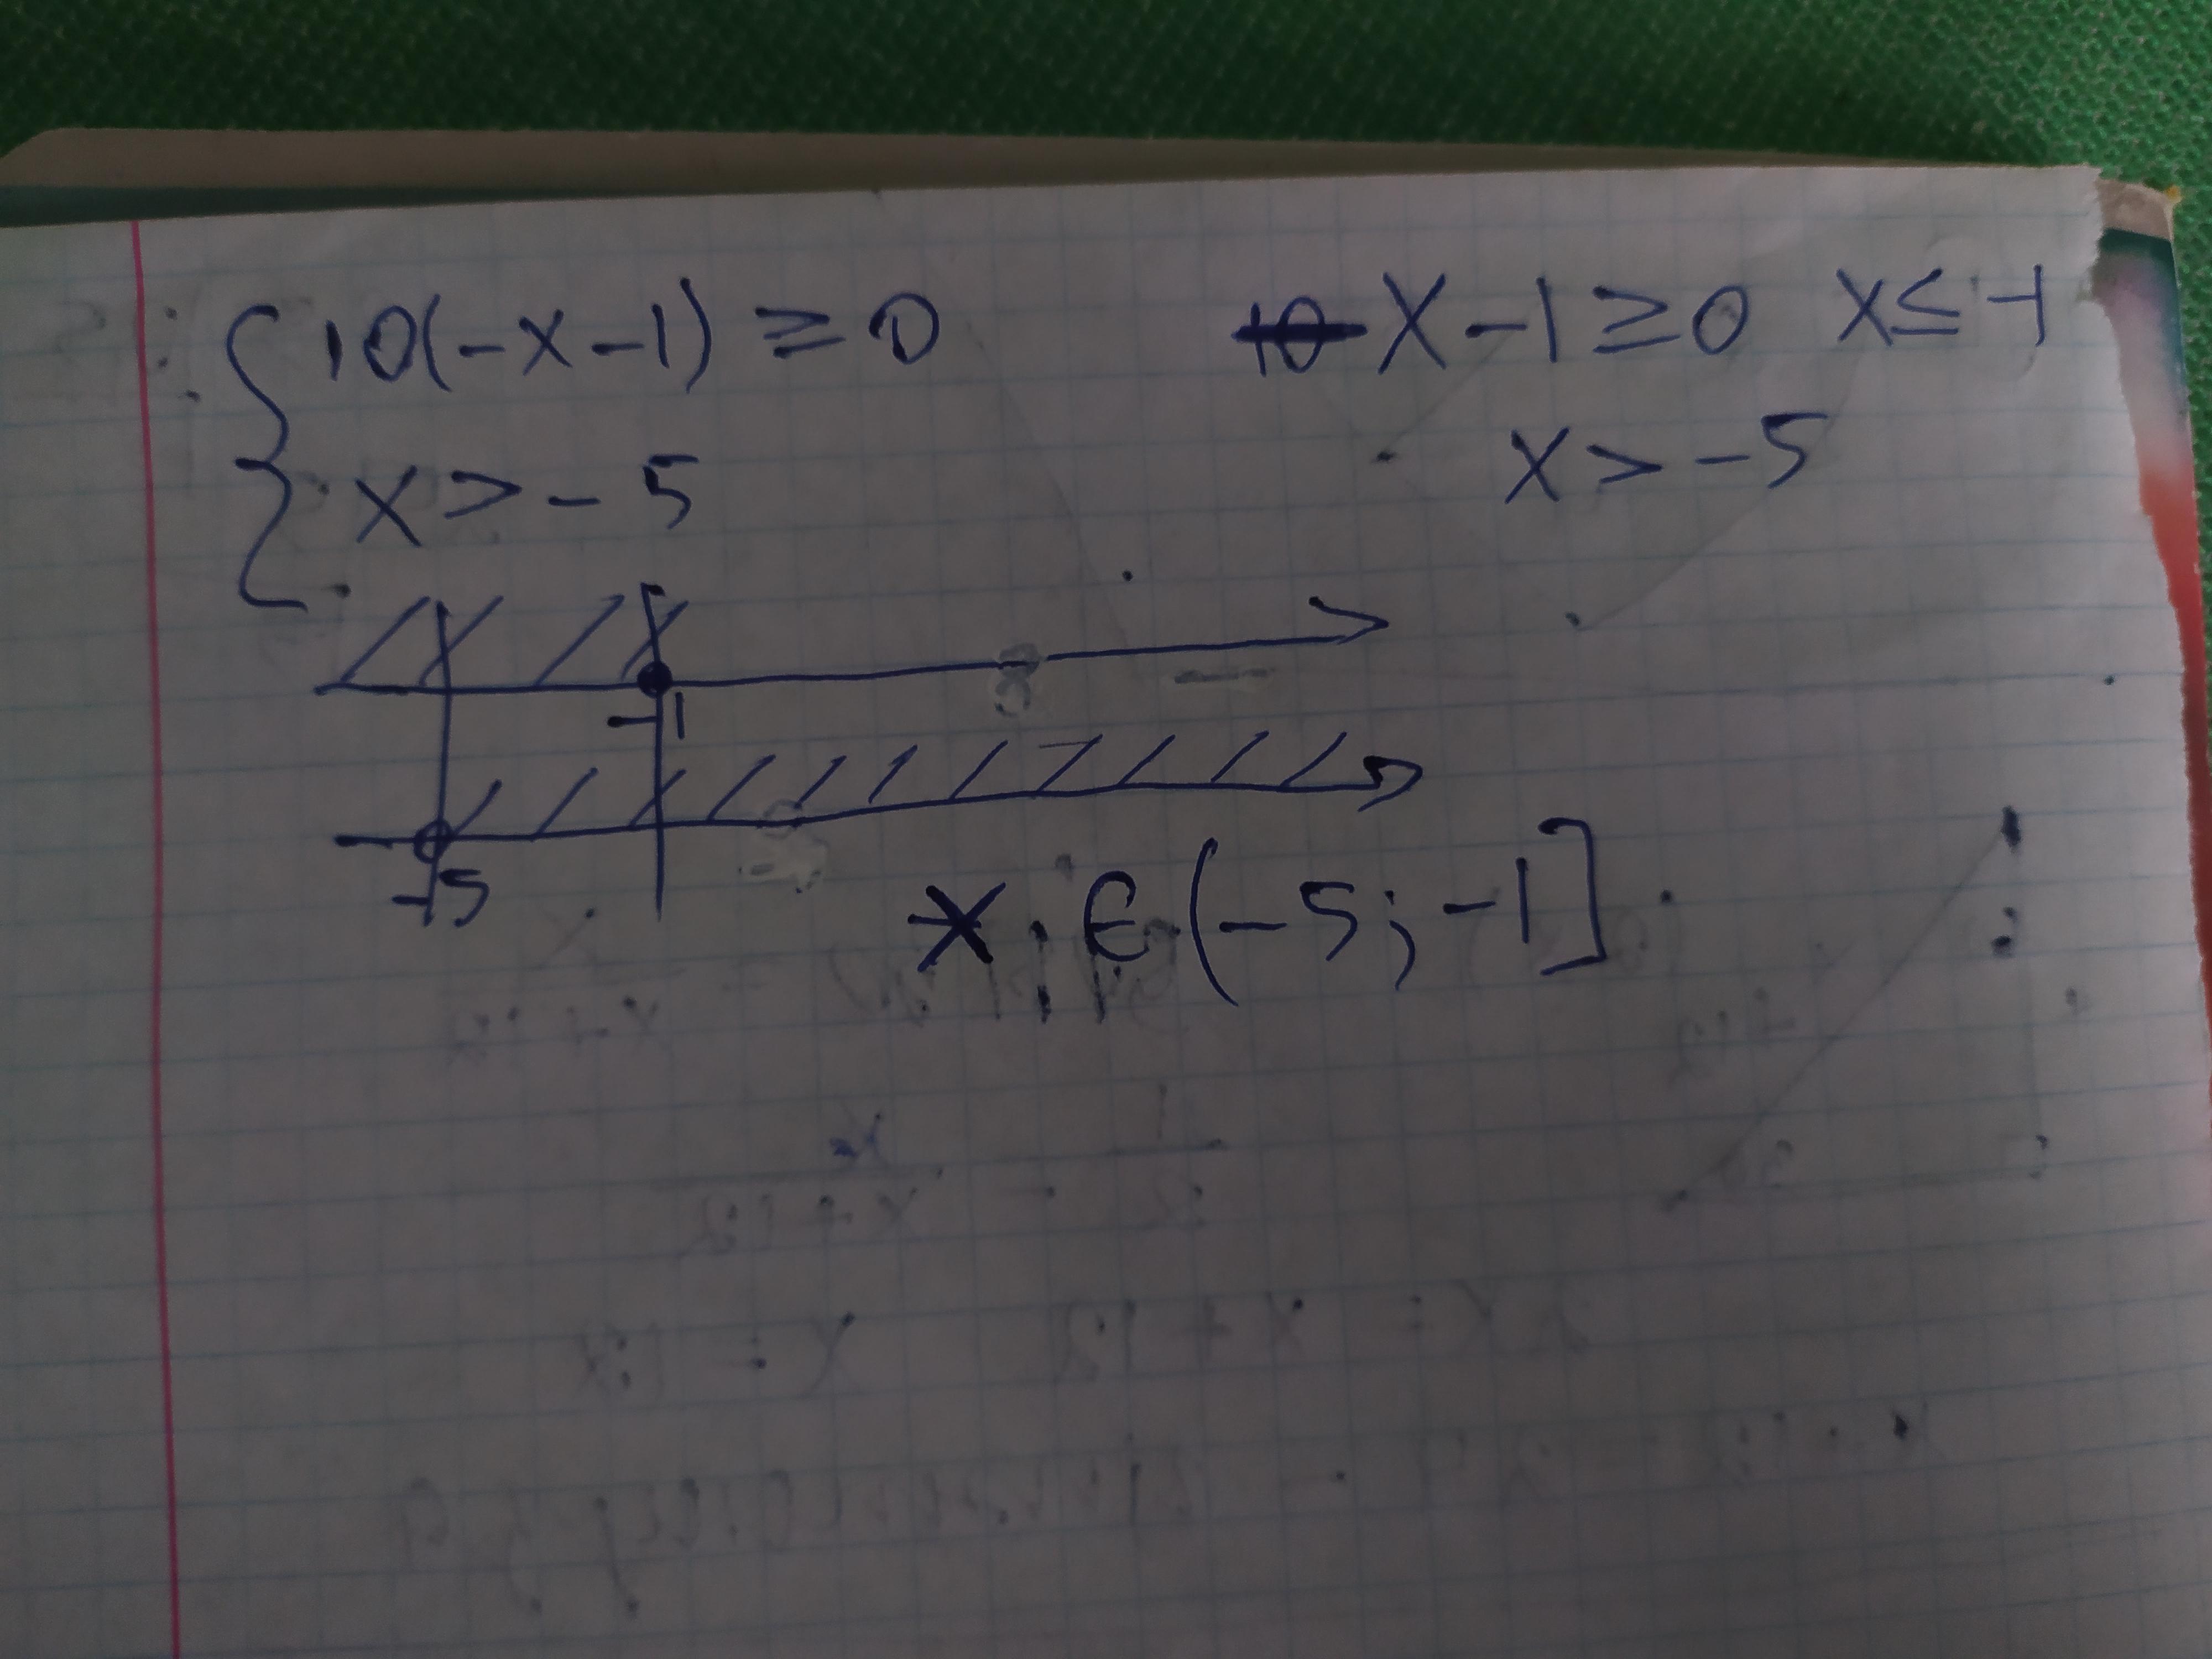 10(-x-1) ≥ 0 X-1≥0 x≤-1
x>-5 x>-5
-1
-5
x ∈ (-5; -1]